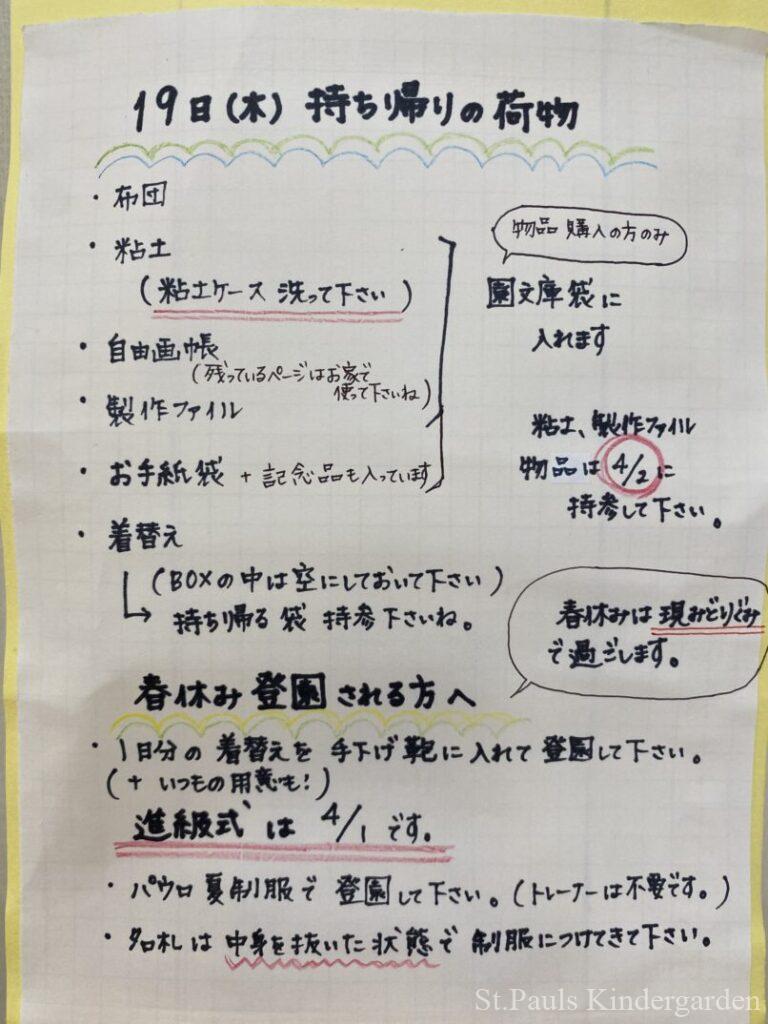 19日(木) 持ち帰りの荷物
・布団
・粘土
(粘土ケース 洗って下さい)
・自由画帳
(残っているページはお家で
使って下さいね)
・製作ファイル
・お手紙袋 + 記念品も入っています
物品 購入の方のみ
園文庫袋に
入れます
粘土、製作ファイル
物品は 4/2 に
持参して下さい。
・着替え
(BOXの中は空にしておいて下さい)
→ 持ち帰る 袋 持参下さいね。
春休みは 現みどりぐみ
で過ごします。
春休み 登園される方へ
・1日分の着替えを 手下げ鞄に入れて登園して下さい。
(+ いつもの用意も!)
進級式は 4/1 です。
・パウロ夏制服で 登園して下さい。(トレーナーは不要です。)
・名札は 中身を抜いた状態で 制服につけてきて下さい。
St.Pauls Kindergarden